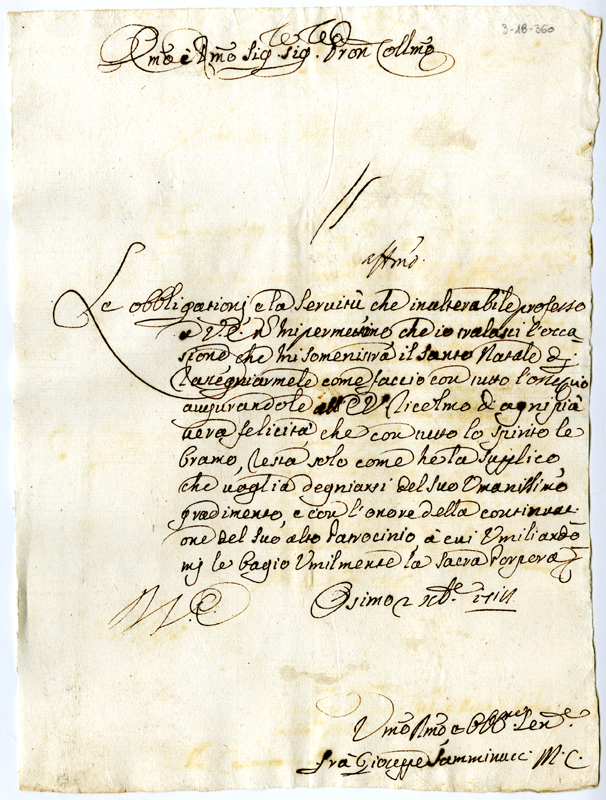 3-18-360
Emo e Rmo Sig. Sig. Pron Collmo
Le obbligationj e la servitù che inalterabile professo
a V.E. nō mi permettono che io tralasci l'occa-
sione che mi somenistra il Santo Natale dj
come faccio con tutto l'ossequio
augurandole all' E.V. di ogni più
vera felicità che con tutto lo spirito le
bramo, resta solo come he la supplico
che voglia degniarsi del suo Umanissimo
gradimento, e con l'onore della continuat-
one del suo alto Patrocinio à cui Umiliandō
mj le bagio Umilmente la Sacra Porpora
Osimo 2
Umo e Obbmo
frà Gioseppe Samminucci M.C.